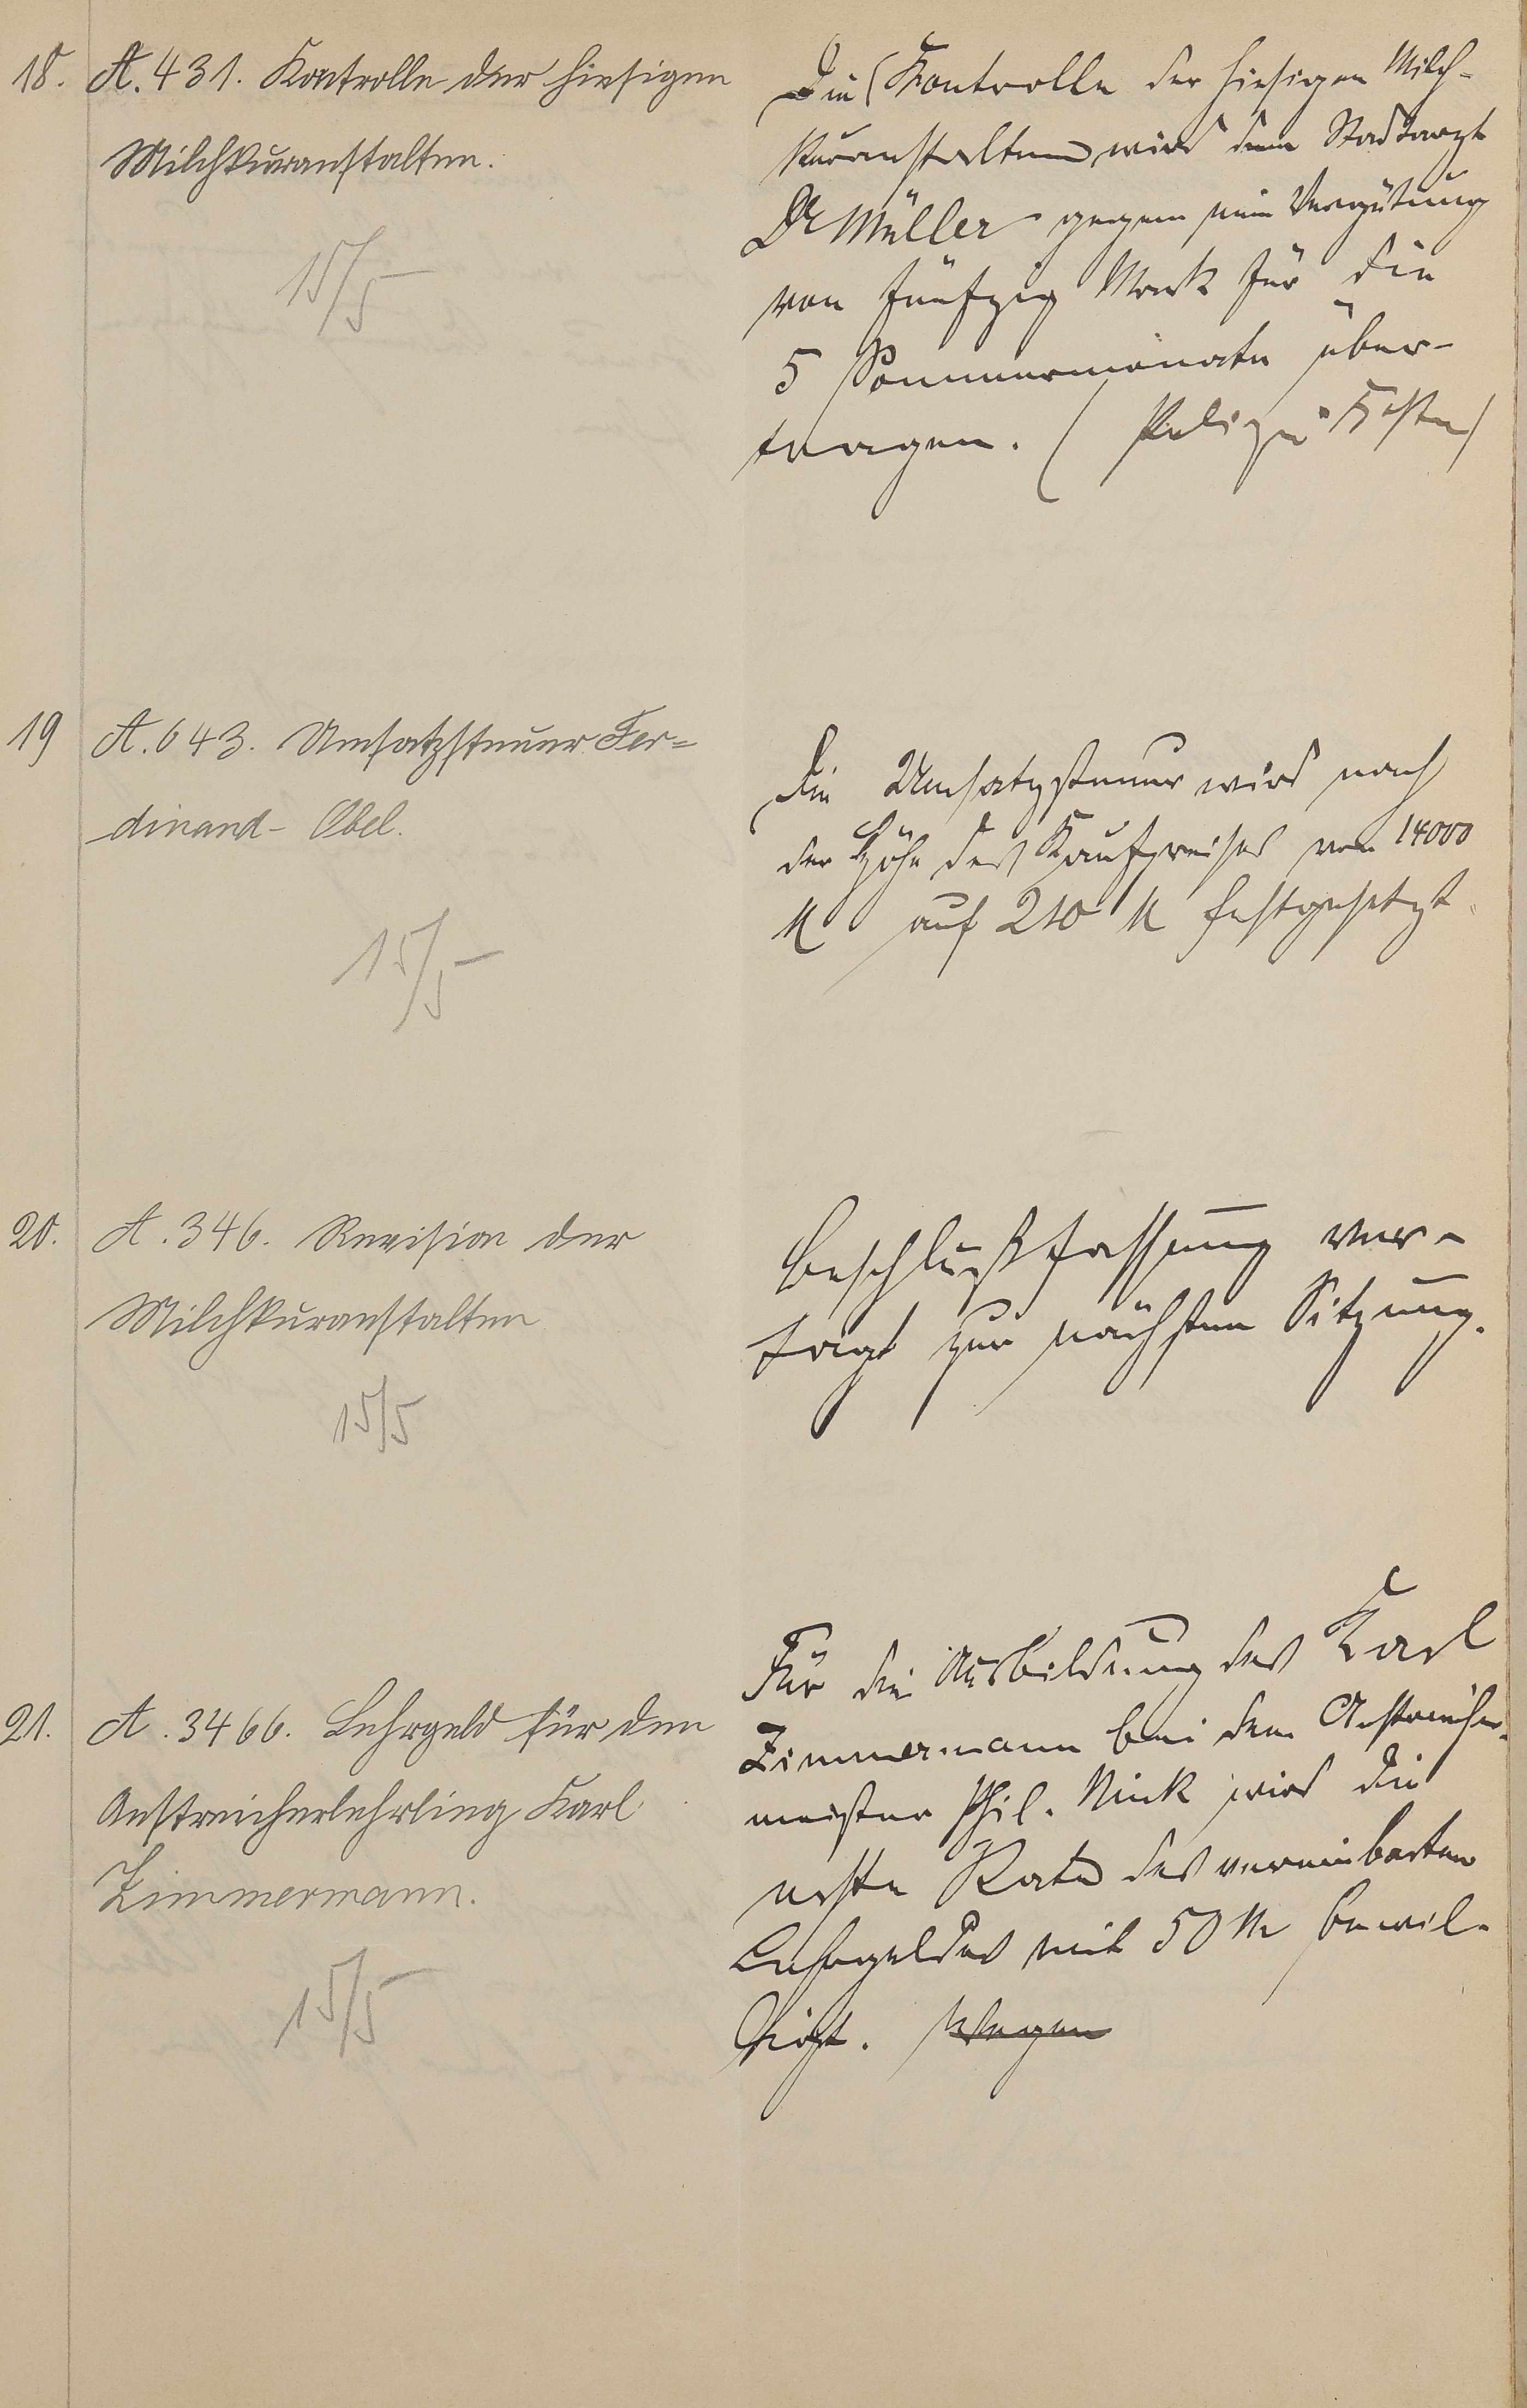 18. A. 431. Kontrolle der hiesigen
Milchkuranstalten.
15/5
Die Kontrolle der hiesigen Milch-
kuranstalten wird dem Stadtarzt
Dr Müller gegen eine Vergütung
von fünfzig Mark für die
5 Sommermonate über-
tragen. (Polizei
19 A. 643. Umsatzsteuer Fer=
dinand- Obel.
15/5
Die Umsatzsteuer wird nach
der Höhe des Kaufpreises von 14000
M auf 210 M festgesetzt.
20. A. 346. Revision der
Milchkuranstalten
15/5
Beschlußfassung ver-
tagt zur nächsten Sitzung.
21. A. 3466. Lehrgeld für den
Anstreicherlehrling Karl
Zimmermann.
15/5
Für die Ausbildung des Karl
Zimmermann bei dem Anstreicher-
meister Phil. Mick wird die
erste Rate des vereinbarten
Lehrgeldes mit 50 M bewil-
ligt. Wegen